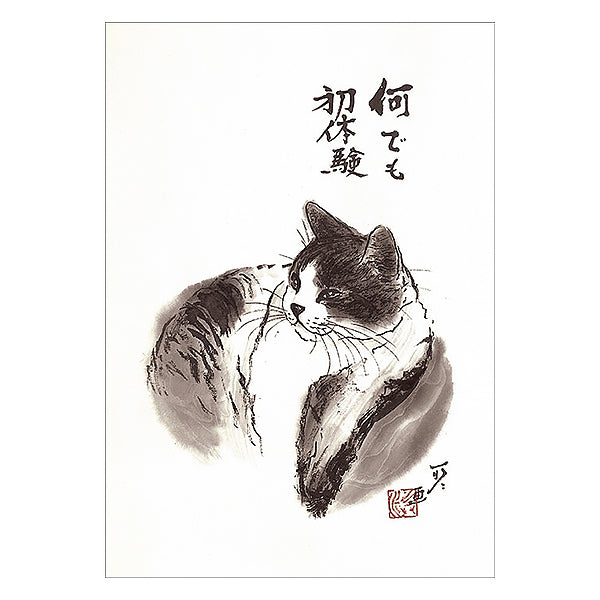 何でも
初体験